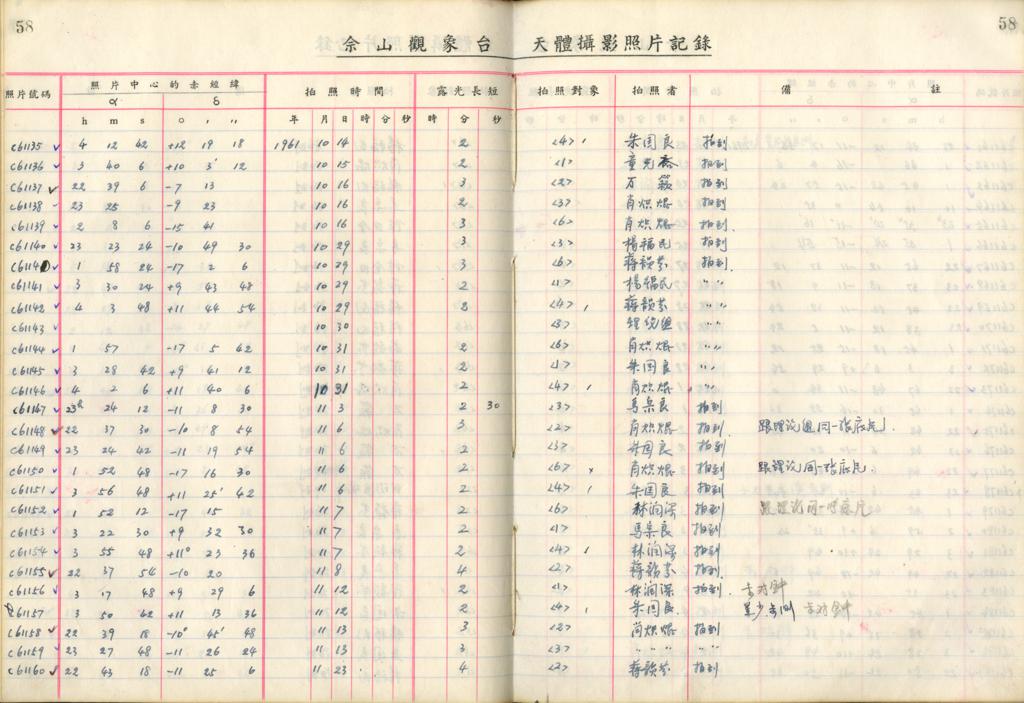 58
58
佘山觀象台 天體攝影照片記錄
照片號碼 照片中心的赤經緯 拍照時間 露光長短 拍照對象 拍照者 備註
α δ
h m s ° ′ ″ 年 月 日 時 分 秒 時 分 秒
c61135 4 12 42 +12 19 18 1961 10 14 2 <4> 朱国良 拍到
c61136 3 40 6 +10 3' 12 10 15 2 <1> 拍到
c61137 22 39 6 -7 13 10 16 3 <2> 万籁 拍到
c61138 23 25 -9 23 10 16 2 <3> 拍到
c61139 2 8 6 -15 41 10 16 3 <6> 拍到
c61140 23 23 24 -10 49 30 10 29 3 <3> 楊福民 拍到
1 58 24 -17 2 6 10 29 3 <6> 蒋韻芬 拍到.
c61141 3 30 24 +9 43 48 10 29 2 <1> 楊福民 〃
c61142 4 3 48 +11 44 54 10 29 2 <4> 蒋韻芬 〃
c61143 10 30 <3> 〃
c61144 1 57 -17 5 42 10 31 2 <6> 〃
c61145 3 28 42 +9 41 12 10 31 2 <1> 朱国良 〃
c61146 4 2 6 +11 40 6 10 31 2 <4> 〃
c61147 23h 24 12 -11 8 30 11 3 2 30 <3> 馬杲良 拍到
c61148 22 37 30 -10 8 54 11 6 3 <2> 拍到. 跟理论組同一張底片.
c61149 23 24 42 -11 19 54 11 6 2 <3> 朱国良 拍到
c61150 1 52 48 -17 16 30 11 6 2 <6> 拍到 跟理论同一張底片.
c61151 3 56 48 +11 25' 42 11 6 2 <4> 朱国良 拍到
c61152 1 52 12 -17 15 11 7 2 <6> 林润深 拍到
c61153 3 22 30 +9 32 30 11 7 2 <1> 馬杲良 拍到
c61154 3 55 48 +11° 23 36 11 7 2 <4> 林润深 拍到
c61155 22 37 54 -10 20 11 8 4 <2> 蒋韻芬 拍到.
c61156 3 17 48 +9 29 6 11 12 2 <1> 林润深 拍到.
c61157 3 50 42 +11 13 36 11 12 2 <4> 朱国良
c61158 22 39 18 -10° 45' 48 11 13 3 <2> 拍到
c61159 23 27 48 -11 26 24 11 13 3 <3> 〃 〃 〃
c61160 22 43 18 -11 25 6 11 23 4 <2> 蒋韻芬 拍到